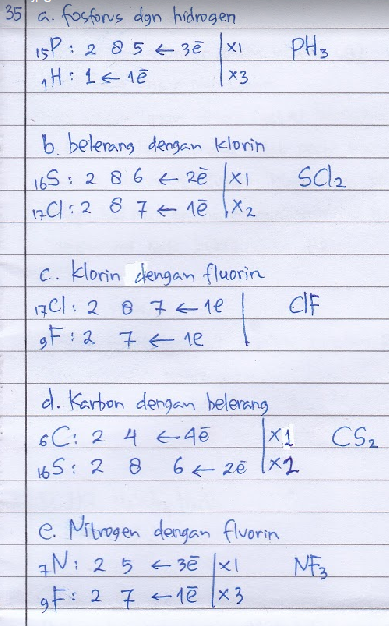 35 a. fosforus dgn hidrogen
₁₅P : 2 8 5 ← 3ē | x1 PH₃
₁H : 1 ← 1ē | x3
b. belerang dengan klorin
₁₆S : 2 8 6 ← 2ē | x1 SCl₂
₁₇Cl : 2 8 7 ← 1ē | x2
c. klorin dengan fluorin
₁₇Cl : 2 8 7 ← 1e | ClF
₉F : 2 7 ← 1e |
d. Karbon dengan belerang
₆C : 2 4 ← 4ē | x1 CS₂
₁₆S : 2 8 6 ← 2ē | x2
e. Nitrogen dengan fluorin
₇N : 2 5 ← 3ē | x1 NF₃
₉F : 2 7 ← 1ē | x3